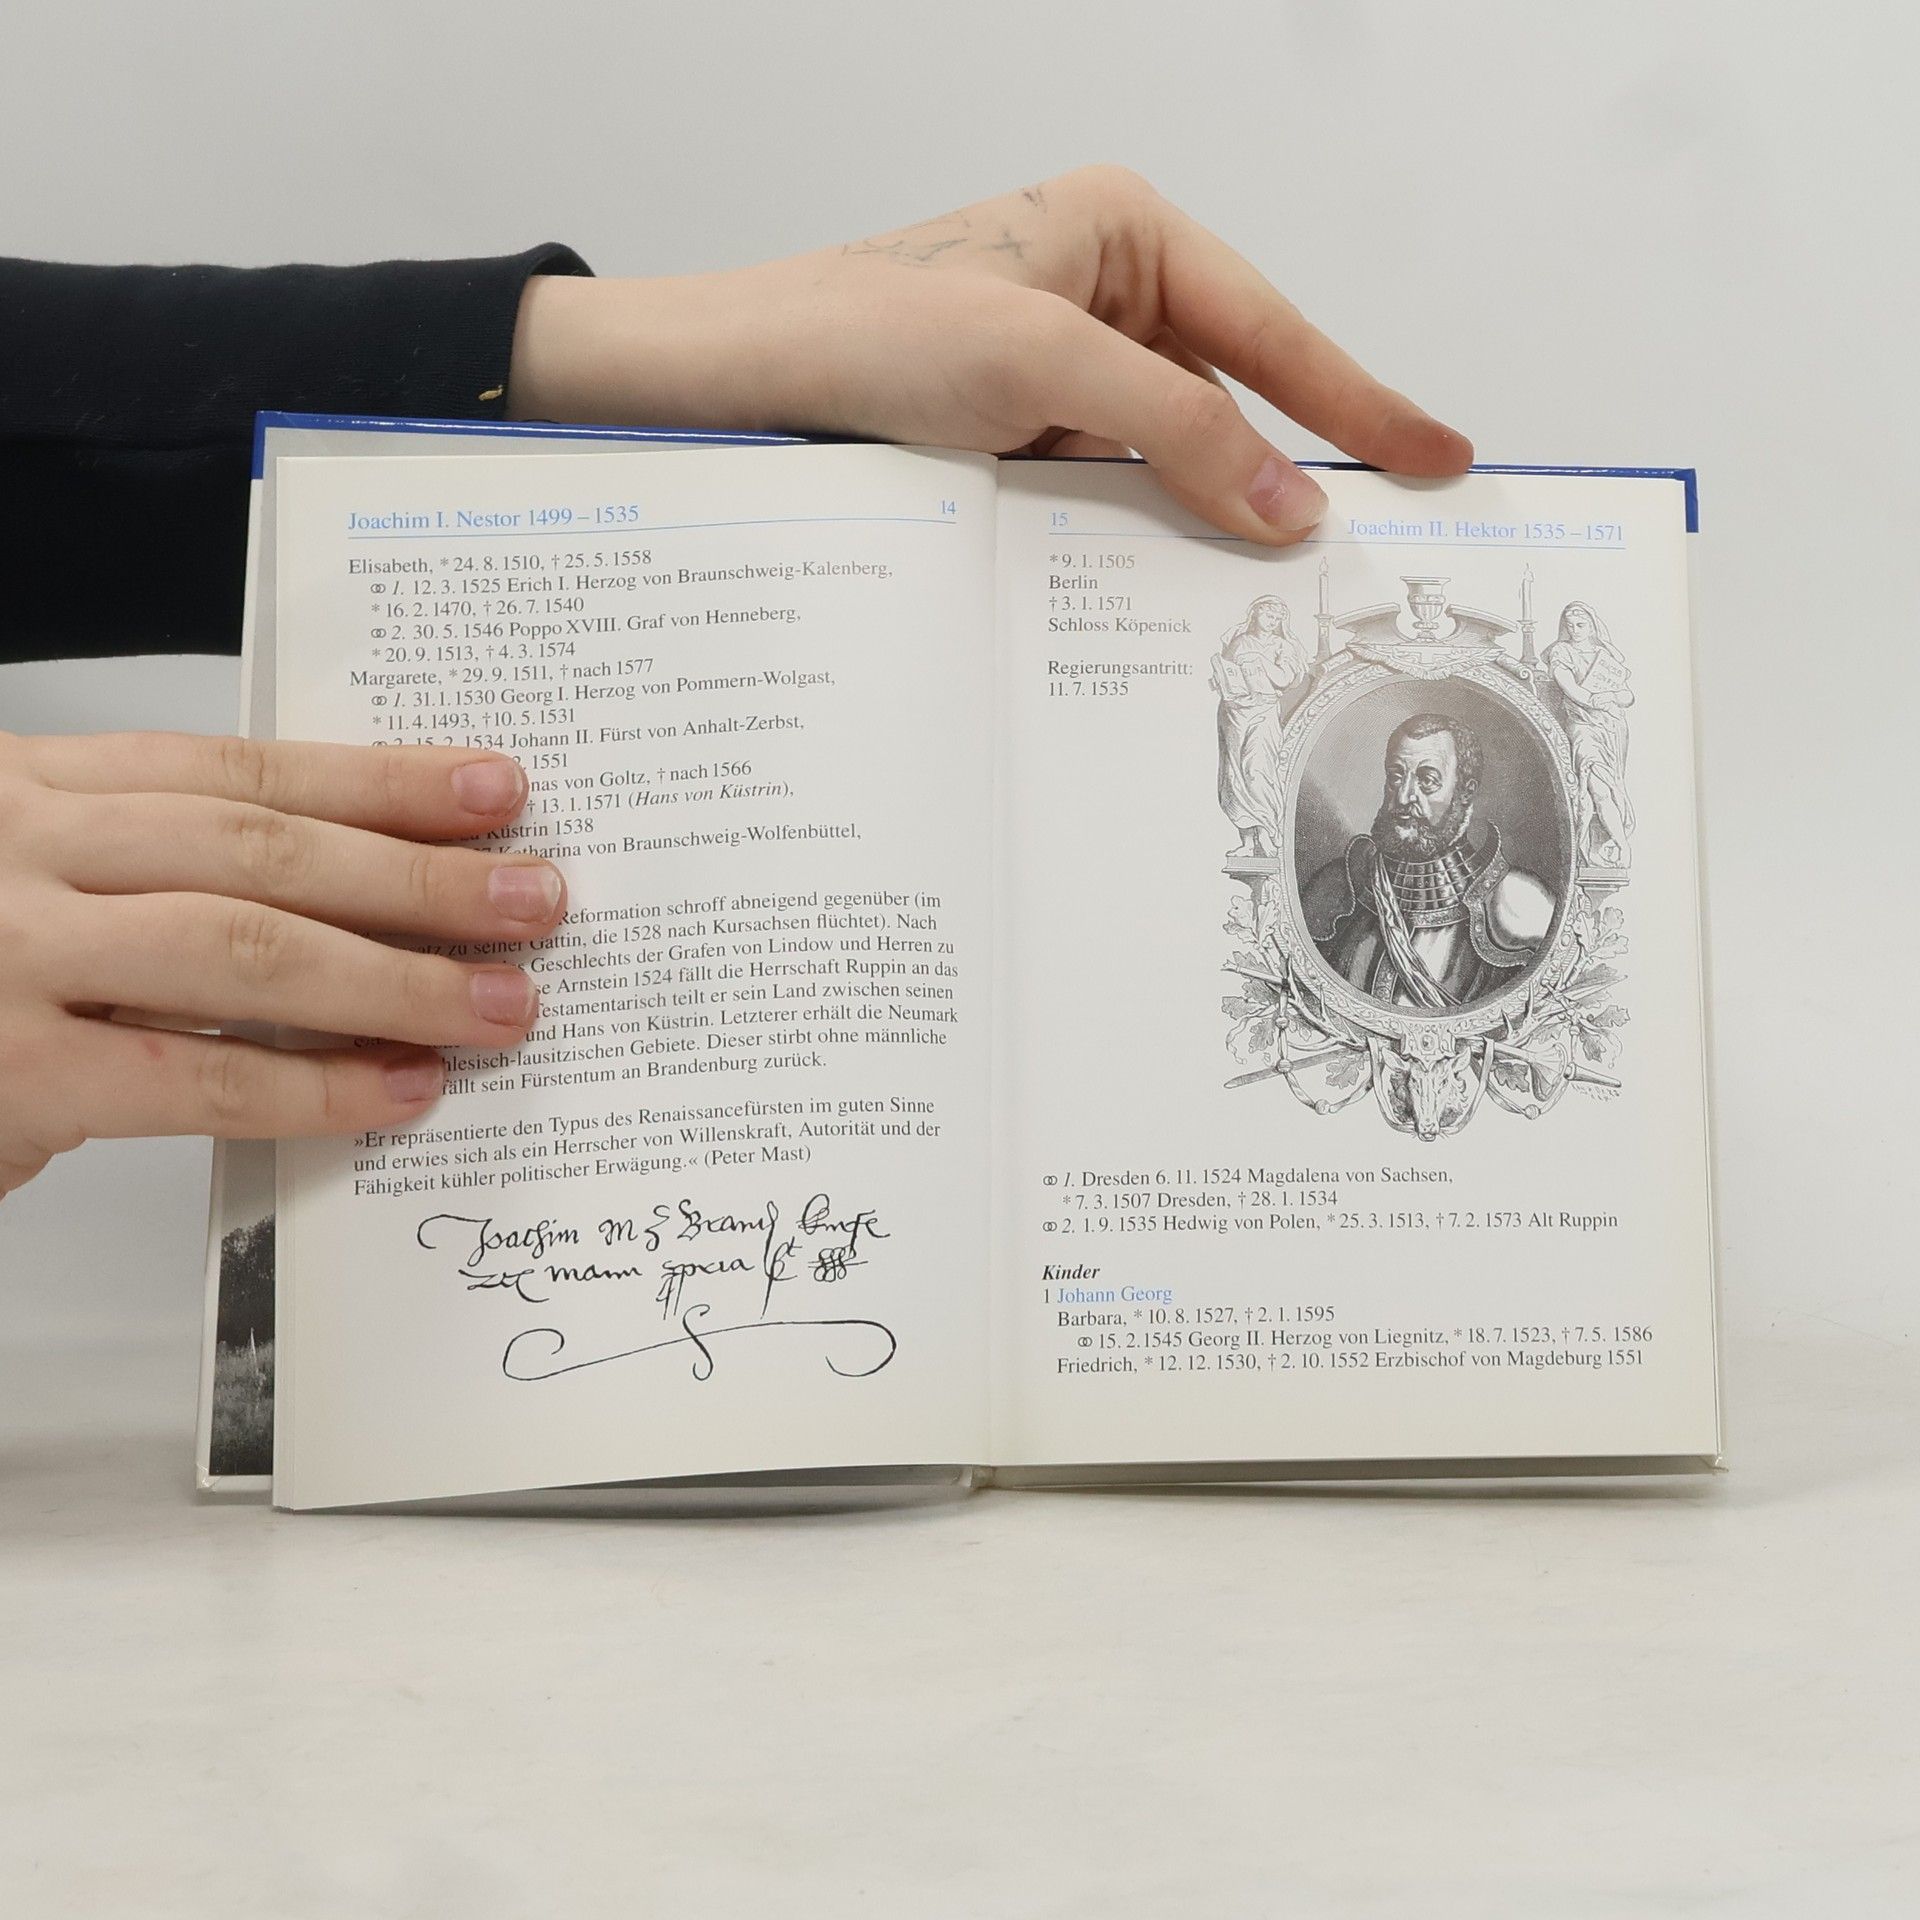 Joachim I. Nestor 1499 – 1535 14
Elisabeth, * 24. 8. 1510, † 25. 5. 1558
⚭ 1. 12. 3. 1525 Erich I. Herzog von Braunschweig-Kalenberg,
* 16. 2. 1470, † 26. 7. 1540
⚭ 2. 30. 5. 1546 Poppo XVIII. Graf von Henneberg,
* 20. 9. 1513, † 4. 3. 1574
Margarete, * 29. 9. 1511, † nach 1577
⚭ 1. 31. 1. 1530 Georg I. Herzog von Pommern-Wolgast,
* 11. 4. 1493, † 10. 5. 1531
⚭ 2. 15. 2. 1534 Johann II. Fürst von Anhalt-Zerbst,
1551
von Goltz, † nach 1566
† 13. 1. 1571 (Hans von Küstrin),
Küstrin 1538
Katharina von Braunschweig-Wolfenbüttel,
Reformation schroff abneigend gegenüber (im
zu seiner Gattin, die 1528 nach Kursachsen flüchtet). Nach
Geschlechts der Grafen von Lindow und Herren zu
Arnstein 1524 fällt die Herrschaft Ruppin an das
Testamentarisch teilt er sein Land zwischen seinen
und Hans von Küstrin. Letzterer erhält die Neumark
hlesisch-lausitzischen Gebiete. Dieser stirbt ohne männliche
fällt sein Fürstentum an Brandenburg zurück.
»Er repräsentierte den Typus des Renaissancefürsten im guten Sinne
und erwies sich als ein Herrscher von Willenskraft, Autorität und der
Fähigkeit kühler politischer Erwägung.« (Peter Mast)
Joachim
mann
15 Joachim II. Hektor 1535 – 1571
* 9. 1. 1505
Berlin
† 3. 1. 1571
Schloss Köpenick
Regierungsantritt:
11. 7. 1535
⚭ 1. Dresden 6. 11. 1524 Magdalena von Sachsen,
* 7. 3. 1507 Dresden, † 28. 1. 1534
⚭ 2. 1. 9. 1535 Hedwig von Polen, * 25. 3. 1513, † 7. 2. 1573 Alt Ruppin
Kinder
1 Johann Georg
Barbara, * 10. 8. 1527, † 2. 1. 1595
⚭ 15. 2. 1545 Georg II. Herzog von Liegnitz, * 18. 7. 1523, † 7. 5. 1586
Friedrich, * 12. 12. 1530, † 2. 10. 1552 Erzbischof von Magdeburg 1551